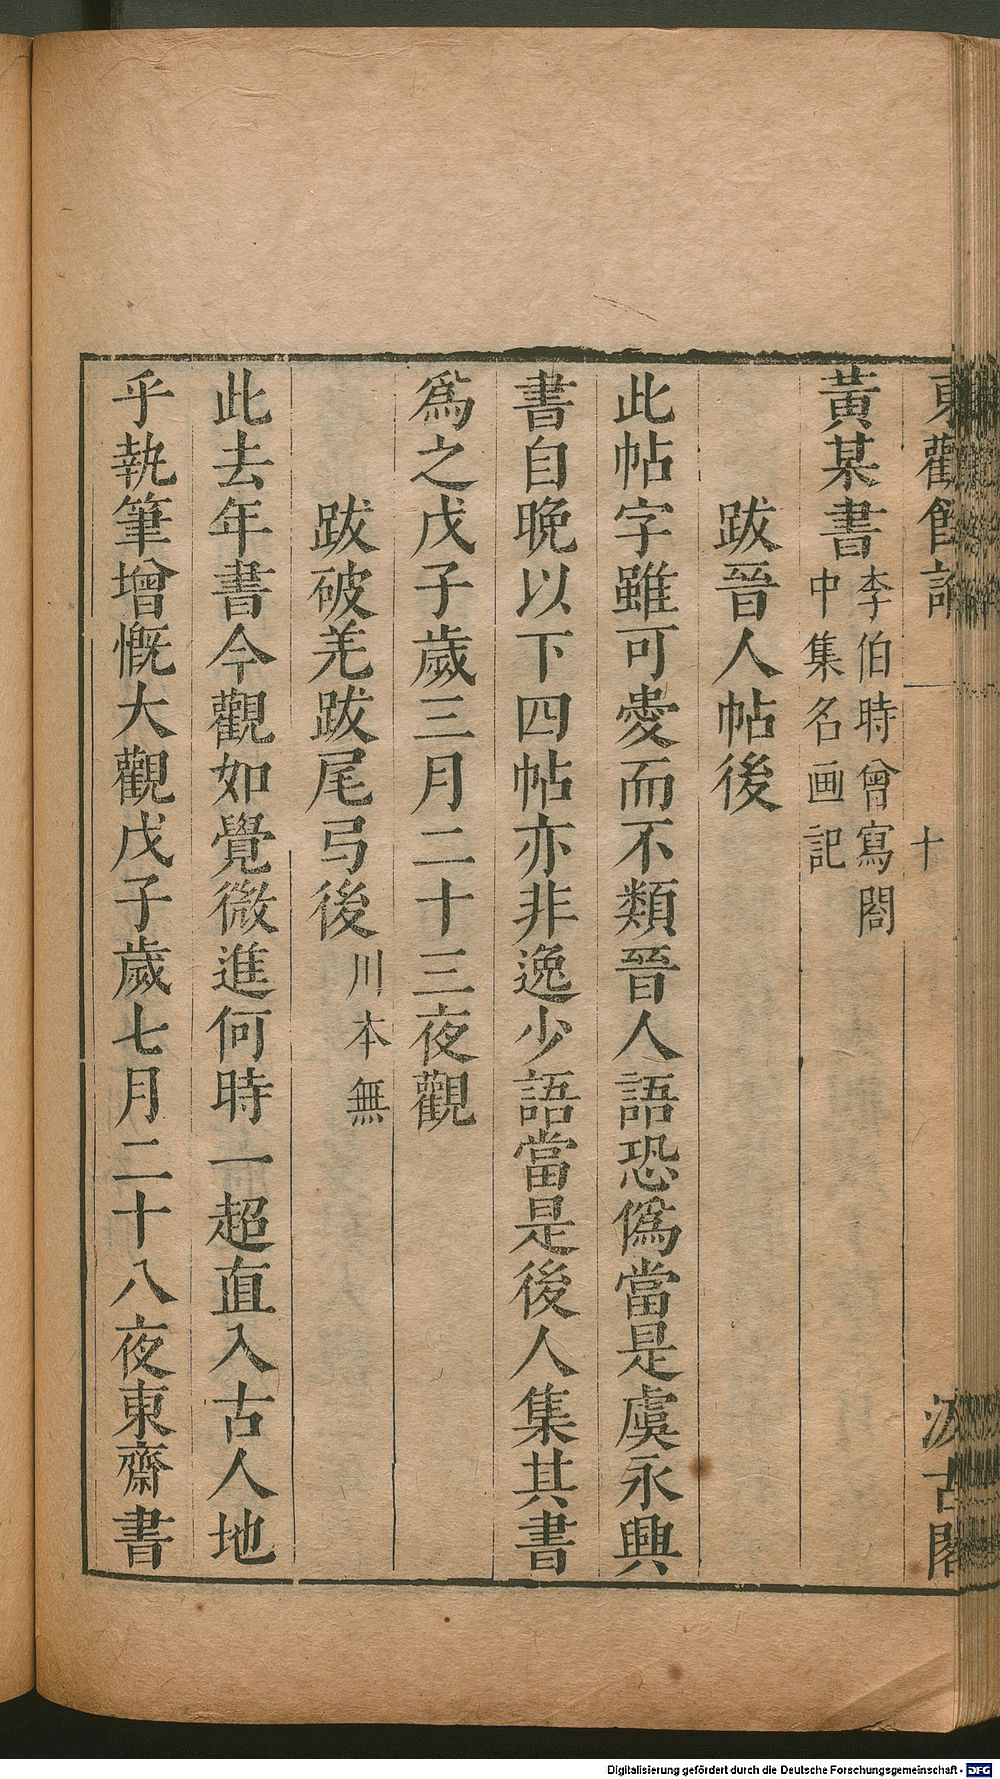 東觀餘論
十
汲古閣
黃某書李伯時曾寫閣
中集名画記
跋晉人帖後
此帖字雖可愛而不類晉人語恐偽當是虞永興
書自晚以下四帖亦非逸少語當是後人集其書
爲之戊子歲三月二十三夜觀
跋破羌跋尾弓後川本無
此去年書今觀如覺微進何時一超直入古人地
乎執筆增慨大觀戊子歲七月二十八夜東齋書
Digitalisierung gefördert durch die Deutsche Forschungsgemeinschaft - DFG